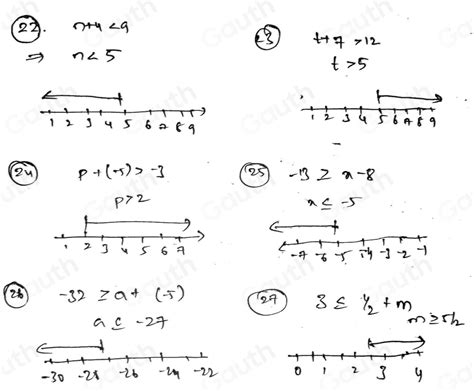 22. n+4 < 9
⇒ n < 5
1 2 3 4 5 6 7 8 9
23 t+7 > 12
t > 5
1 2 3 4 5 6 7 8 9
24 p + (-5) > -3
p > 2
1 2 3 4 5 6 7
25 -13 ≥ x - 8
x ≤ -5
-7 -6 -5 -4 -3 -2 -1
26 -32 ≥ a + (-5)
a ≤ -27
-30 -28 -26 -24 -22
27 3 ≤ 1/2 + m
m ≥ 5/2
0 1 2 3 4
Gauth